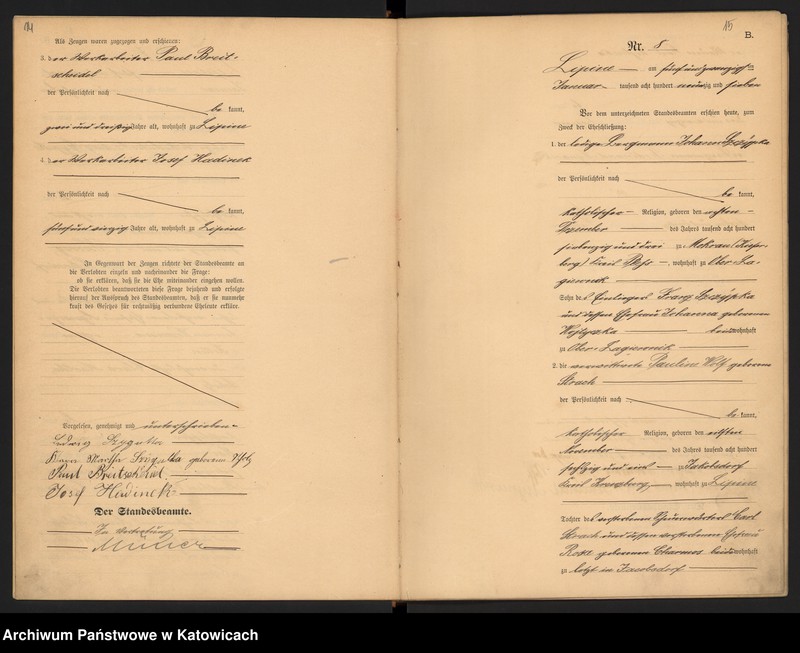 Als Zeugen waren zugezogen und erschienen:
3. der Werkarbeiter Paul Breit-
scheidel
der Persönlichkeit nach
be kannt,
zwei und dreißig Jahre alt, wohnhaft zu Lipine
4. der Werkarbeiter Josef Hadinek
der Persönlichkeit nach
be kannt,
fünf und vierzig Jahre alt, wohnhaft zu Lipine
In Gegenwart der Zeugen richtete der Standesbeamte an
die Verlobten einzeln und nacheinander die Frage:
ob sie erklären, daß sie die Ehe miteinander eingehen wollen.
Die Verlobten beantworteten diese Frage bejahend und erfolgte
hierauf der Ausspruch des Standesbeamten, daß er sie nunmehr
kraft des Gesetzes für rechtmäßig verbundene Eheleute erkläre.
Vorgelesen, genehmigt und unterschrieben
Ludwig
Martha geborene
Paul Breitscheidel
Josef Hadinek
Der Standesbeamte.
In Vertretung
Müller
15
B.
Nr. 8
Lipine am fünfundzwanzigsten
Januar tausend acht hundert neunzig und sieben
Vor dem unterzeichneten Standesbeamten erschien heute, zum
Zweck der Eheschließung:
1. der ledige Bergmann Johann Szczypka
der Persönlichkeit nach
be kannt,
katholischer Religion, geboren den
Dezember des Jahres tausend acht hundert
siebenzig und drei zu Mokrau
Kreis Pleß, wohnhaft zu Ober-La-
giewnik
Sohn des Franz Szczypka
und dessen Ehefrau Johanna geborenen
beide wohnhaft
zu Ober-Lagiewnik
2. die verwittwete Pauline Wolf geborene
Strach
der Persönlichkeit nach
be kannt,
katholischer Religion, geboren den elften
November des Jahres tausend acht hundert
sechzig und zu Jakobsdorf
Kreis Kreuzburg, wohnhaft zu Lipine
Tochter des verstorbenen Carl
Strach und dessen verstorbenen Ehefrau
Rosa geborenen beide wohnhaft
zu letzt in Jacobsdorf
Archiwum Państwowe w Katowicach